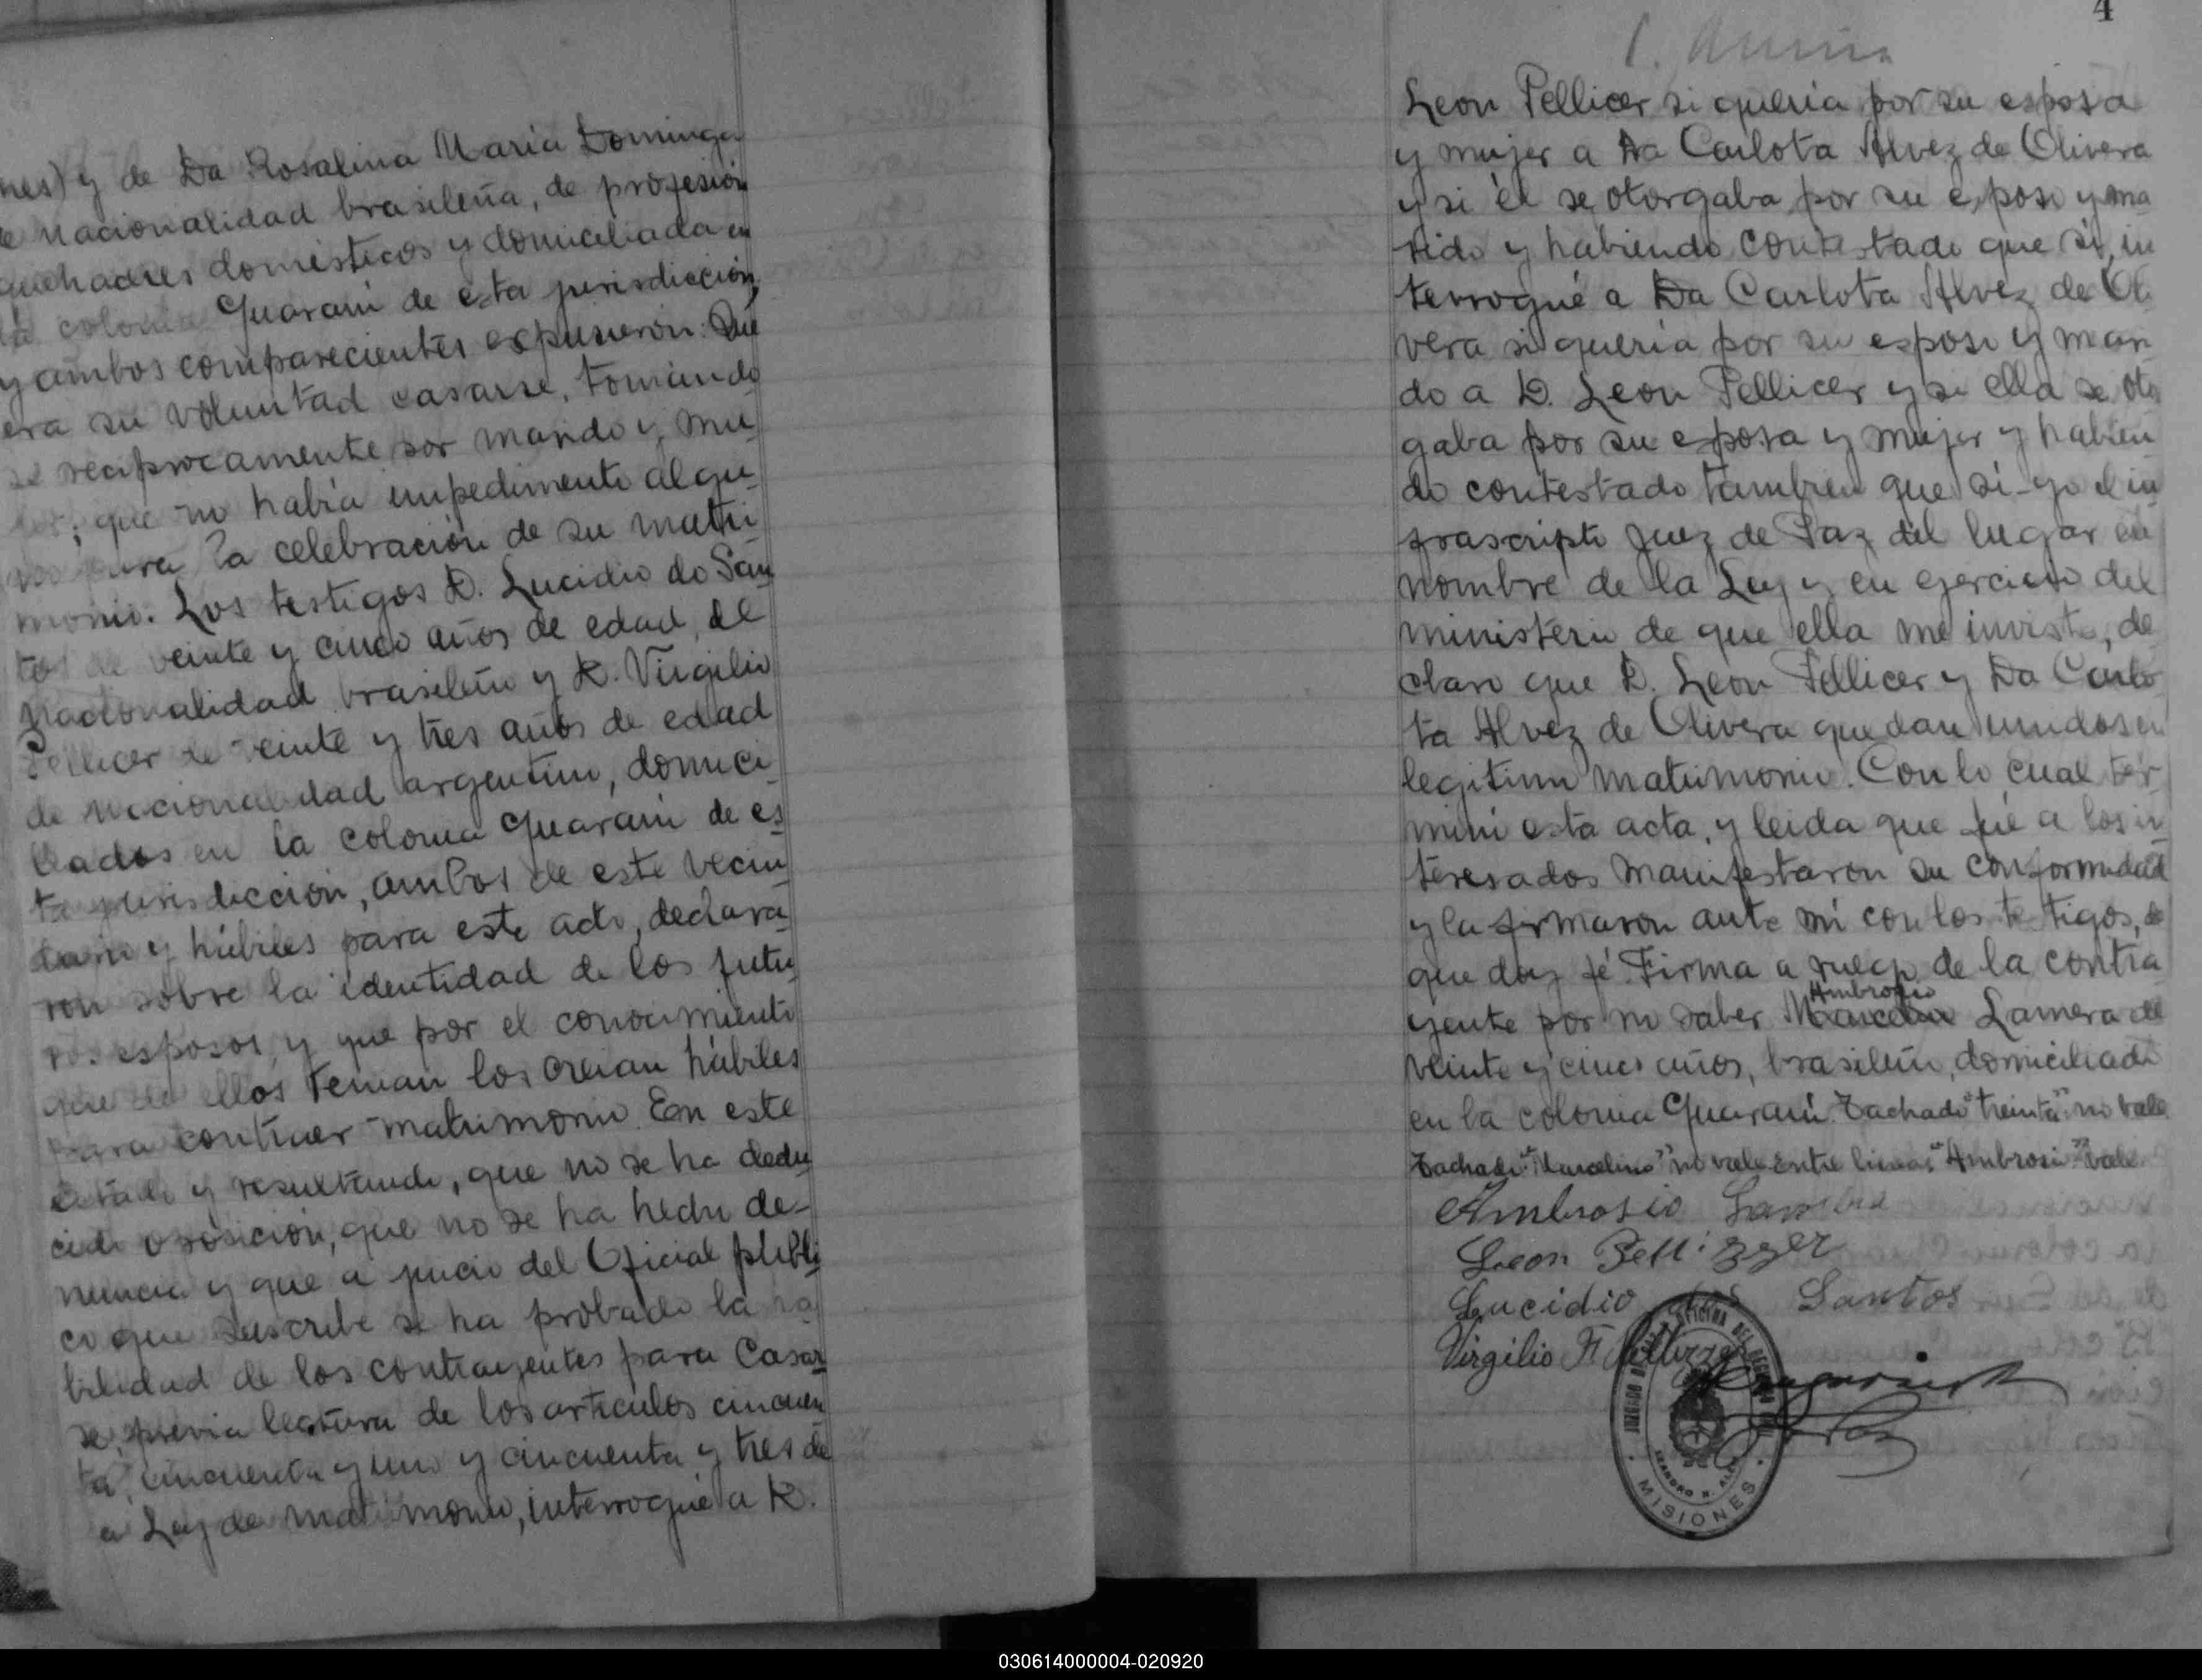 nes) y de Da Rosalina María Dominga
de nacionalidad brasileña, de profesión
quehaceres domésticos y domiciliada en
la colonia Guaraní de esta jurisdicción,
y ambos comparecientes expusieron: Que
era su voluntad casarse, tomándo
se recíprocamente por marido y mu
jer; que no había impedimento algu
no para la celebración de su matri
monio. Los testigos D. Lucidio do San
tos de veinte y cinco años de edad, de
nacionalidad brasileño y D. Virgilio
Pellicer de veinte y tres años de edad
de nacionalidad argentino, domici
liados en la colonia Guaraní de es
ta jurisdicción, ambos de este vecin
dario y hábiles para este acto, declara
ron sobre la identidad de los futu
ros esposos, y que por el conocimiento
que de ellos tenian los creian hábiles
para contraer matrimonio. En este
estado y resultando, que no se ha dedu
cido oposición, que no se ha hecho de-
nuncia y que a juicio del Oficial públi
co que suscribe se ha probado la ha
bilidad de los contrayentes para Casar
se, previa lectura de los artículos cincuen
ta, cincuenta y uno y cincuenta y tres de
a Ley de matrimonio, interrogué a D.
4
Leon Pellicer si quería por su esposa
y mujer a Da Carlota Alvez de Olivera
y si él se otorgaba por su esposo y ma
rido y habiendo contestado que sí, in
terrogué a Da Carlota Alvez de Oli
vera si quería por su esposo y mari
do a D. Leon Pellicer y si ella se otor
gaba por su esposa y mujer y habien
do contestado tambien que sí - yo el in
frascripto Juez de Paz del lugar en
nombre de la Ley y en ejercicio del
ministerio de que ella me inviste, de
claro que D. Leon Pellicer y Da Carlo
ta Alvez de Olivera quedan unidos en
legitimo matrimonio. Con lo cual ter
minó esta acta, y leida que fué a los in
teresados manifestaron su conformidad
y la firmaron ante mí con los testigos, de
que doy fé. Firma a ruego de la contra
Ambrosio
yente por no saber Marcelino Lamera de
veinte y cinco años, brasileño, domiciliado
en la colonia Guaraní. Tachado "treinta" no vale
Tachado "Marcelino" no vale Entre lineas "Ambrosio" vale
Ambrosio
Leon Pellizzer
Lucidio dos Santos
Virgilio Pellizzer
JUZGADO DE PAZ Y OFICINA DEL REGISTRO CIVIL
LEANDRO N. ALEM
MISIONES
030614000004-020920